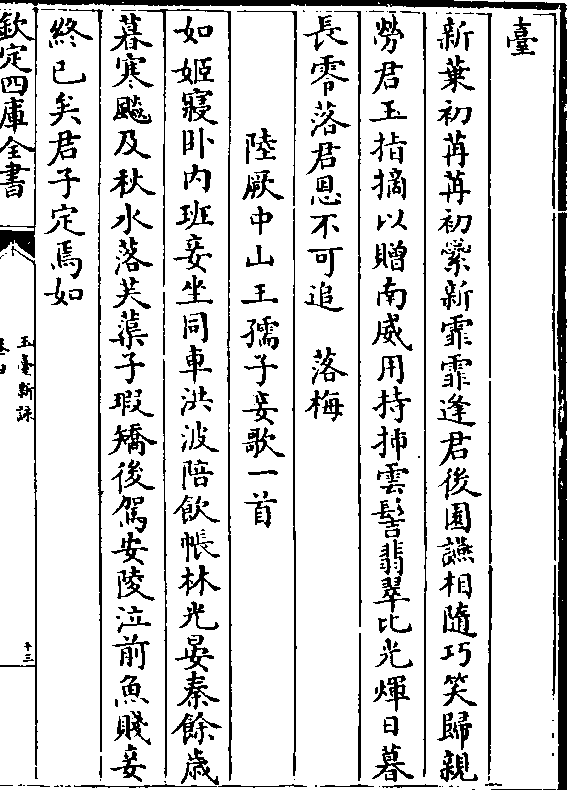 臺
新葉初苒苒初蘂新霏霏逢君後園讌相隨巧笑歸親
勞君玉指摘以贈南威用持揷雲髻翡翠比光煇日暮
長零落君恩不可追　落梅
陸厥中山王孺子妾歌一首
如姬寢卧内班妾坐同車洪波陪飲帳林光晏秦餘歳
暮寒飈及秋水落芙蕖子瑕矯後駕安陵泣前魚賤妾
終已矣君子定焉如
欽定四庫全書
玉臺新詠
十三